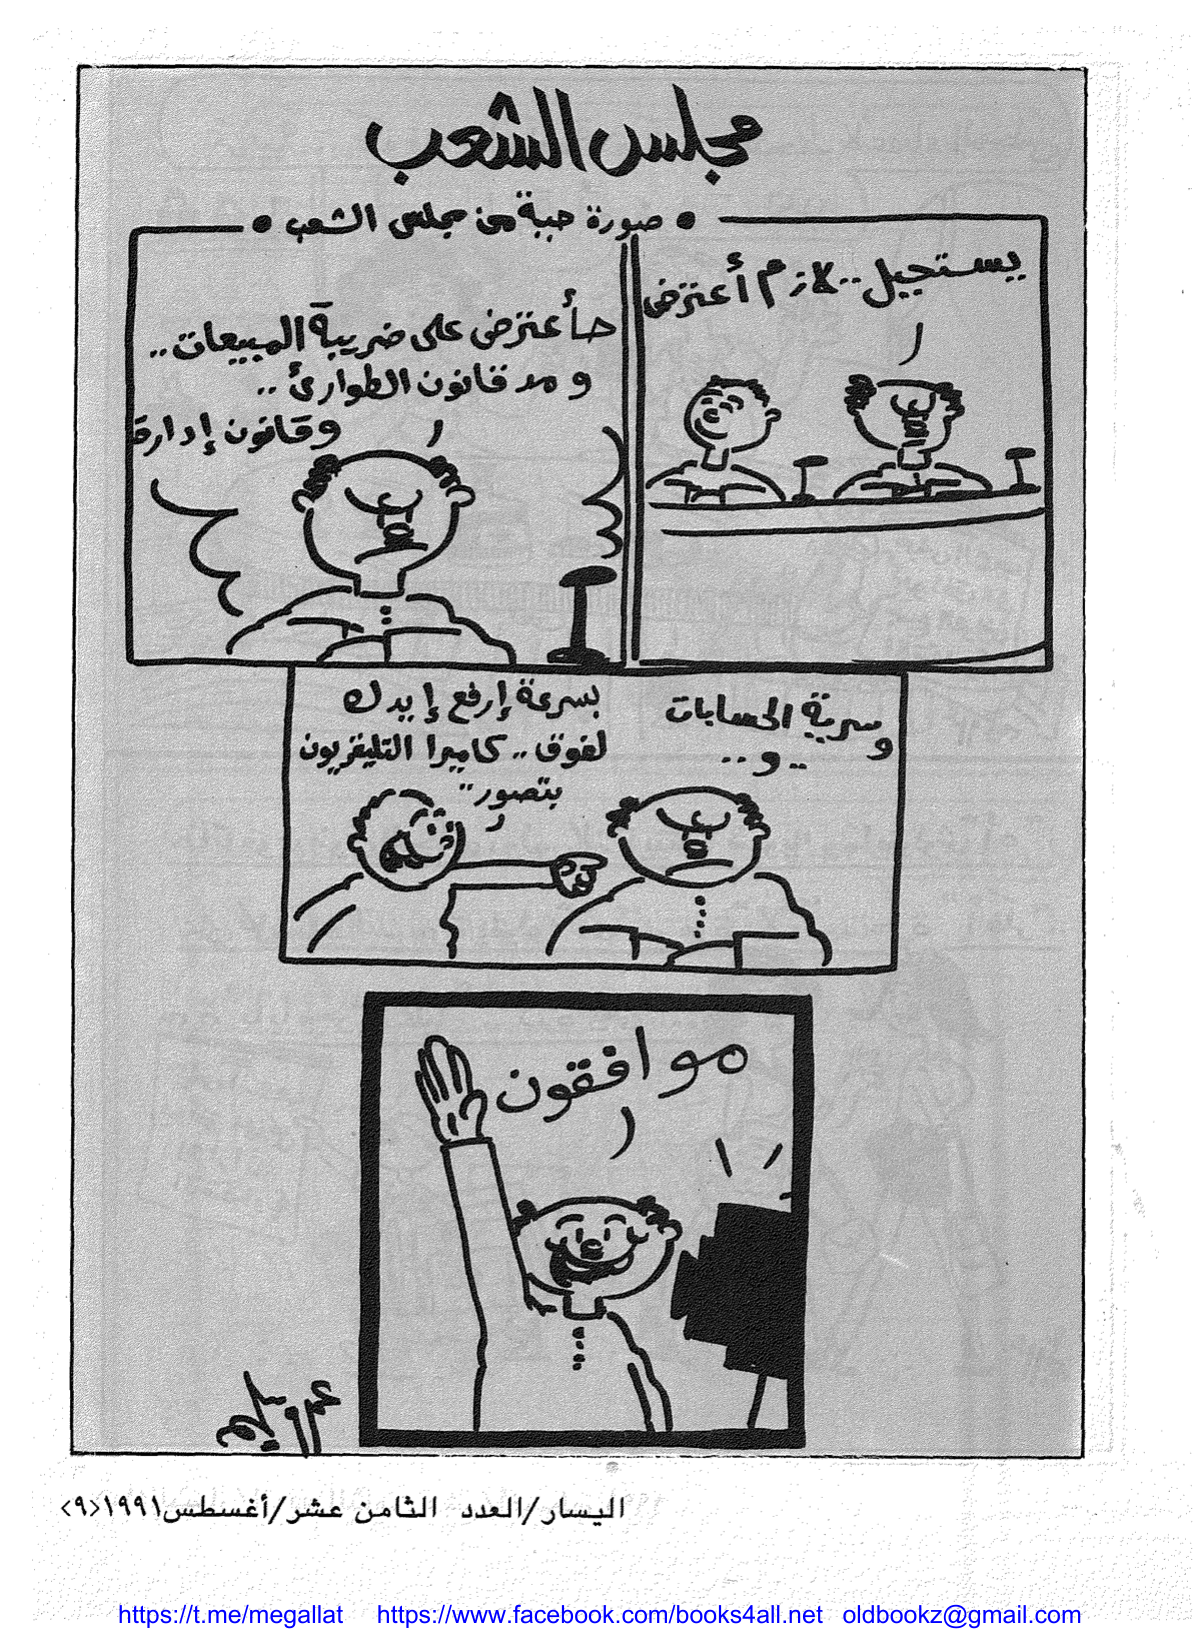 مجلس الشعب
• صورة حية من مجلس الشعب •
يستحيل.. لازم أعترض
حأعترض على ضريبة المبيعات..
و مد قانون الطوارئ..
وقانون إدارة
وسرية الحسابات
.. و ..
بسرعة إرفع إيدك
لفوق.. كاميرا التليفزيون
بتصور..
موافقون
اليسار/العدد الثامن عشر/أغسطس١٩٩١<٩>
https://t.me/megallat https://www.facebook.com/books4all.net oldbookz@gmail.com